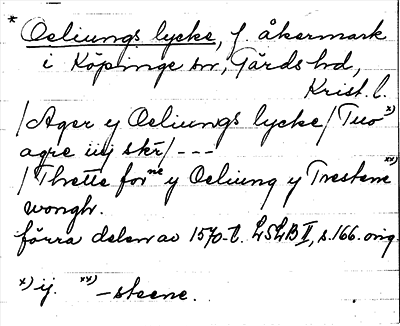 * Oeliungs lycke, f. åkermark
i Köpinge sn, Gärds hd,
Krist. l.
/Ager y Oeliungs lycke/ Tuo x)
agre iiij skr/ ---
/Thrette forne y Oeliung y Trestene xx)
wongh.
förra delen av 1570-t. LSLB II, s. 166. orig.
x) ij. xx) -steene.